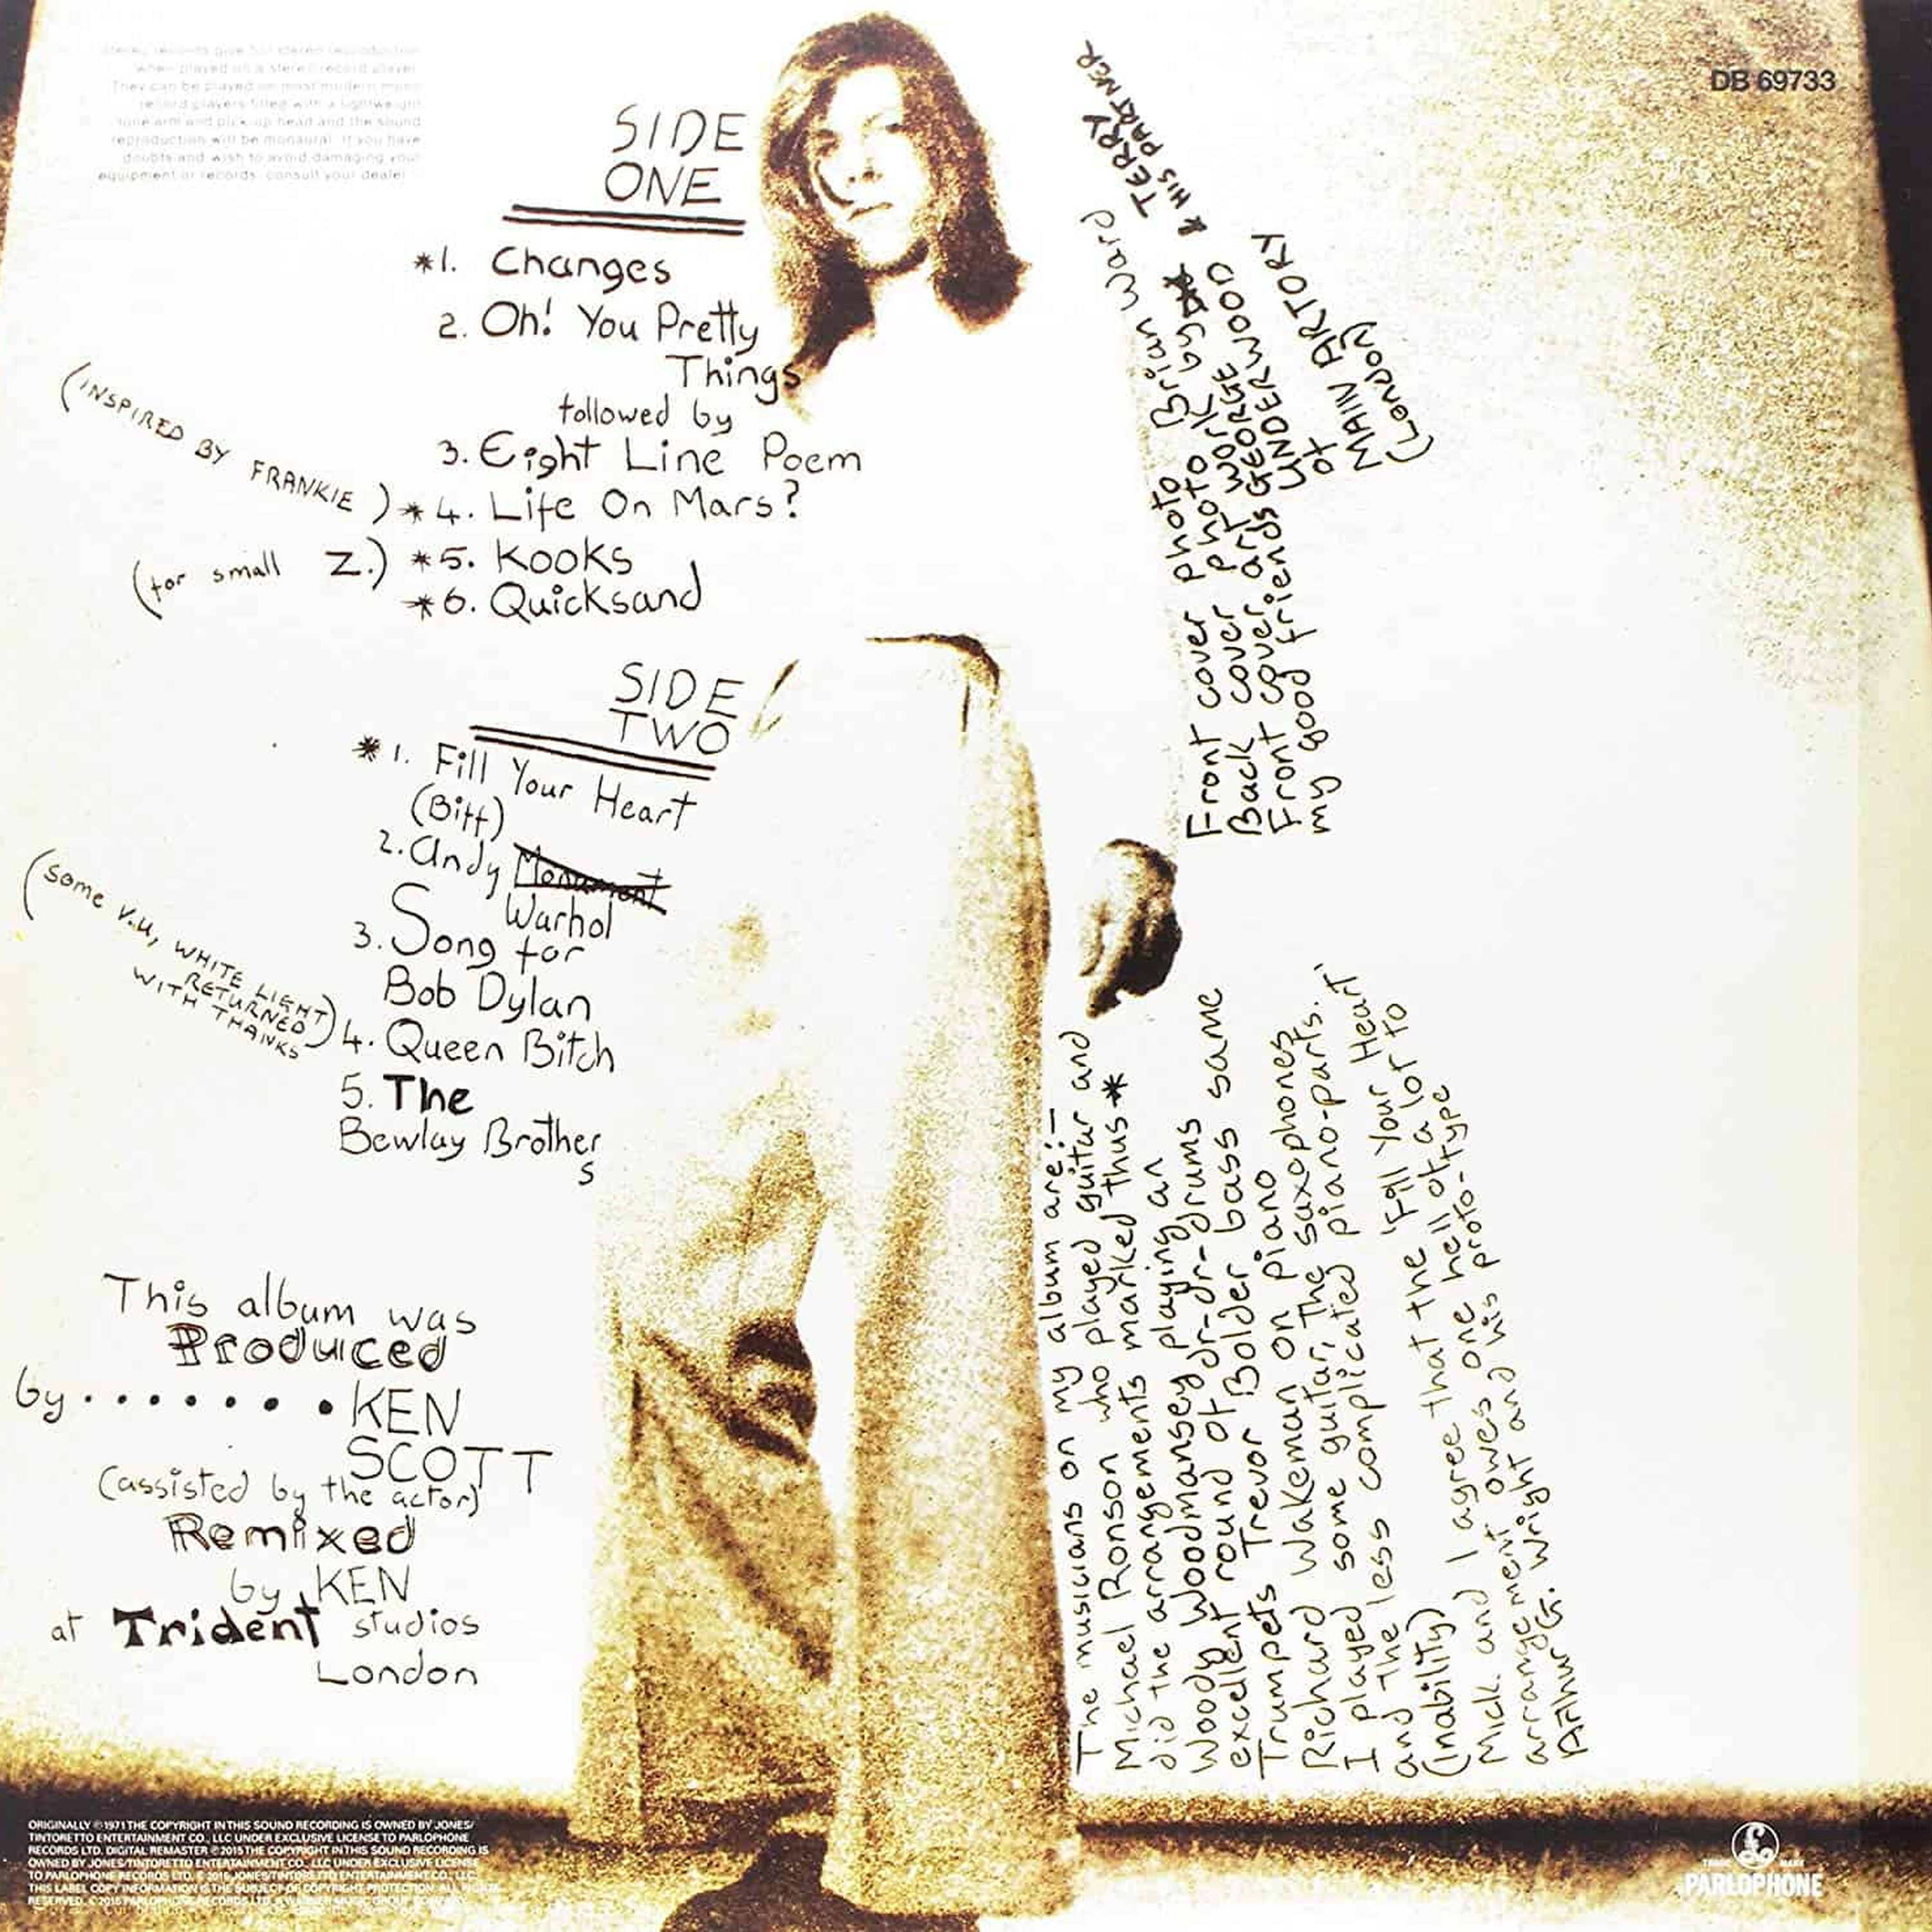 stereo records give full stereo reproduction
when played on a stereo record player.
They can be played on most modern mono
record players fitted with a lightweight
tone arm and pick-up head and the sound
reproduction will be monaural. If you have
doubts and wish to avoid damaging your
equipment or records, consult your dealer.
DB 69733
SIDE
ONE
*1. Changes
2. Oh! You Pretty
Things
followed by
3. Eight Line Poem
(INSPIRED BY FRANKIE) *4. Life On Mars?
(for small Z.) *5. Kooks
*6. Quicksand
SIDE
TWO
*1. Fill Your Heart
(Biff)
2. Andy Monument
Warhol
3. Song for
Bob Dylan
(some V.U, WHITE LIGHT
RETURNED
WITH THANKS) 4. Queen Bitch
5. The
Bewlay Brother
s
This album was
Produced
by........KEN
SCOTT
(assisted by the actor)
Remixed
by KEN
at Trident studios
London
Front cover photo Brian Ward
Back cover photo by
Front cover art work TERRY
& HIS PARTNER
my good friends GEORGE
UNDERWOOD
at
MAIN ARTORY
(London)
The musicians on my album are:-
Michael Ronson who played guitar and
did the arrangements marked thus *
Woody Woodmansey playing an
excellent round of dr-dr-drums
Trumpets Trevor Bolder bass same
Richard Wakeman on piano
I played some guitar, the saxophones
and the less complicated piano-parts.
(inability)
Mick and I agree that the 'Fill Your Heart'
arrangement owes one hell of a lot to
Arthur G. Wright and his proto-type
ORIGINALLY ℗1971 THE COPYRIGHT IN THIS SOUND RECORDING IS OWNED BY JONES/
TINTORETTO ENTERTAINMENT CO., LLC UNDER EXCLUSIVE LICENSE TO PARLOPHONE
RECORDS LTD. DIGITAL REMASTER ℗2015 THE COPYRIGHT IN THIS SOUND RECORDING IS
OWNED BY JONES/TINTORETTO ENTERTAINMENT CO., LLC UNDER EXCLUSIVE LICENSE
TO PARLOPHONE RECORDS LTD. © 2015 JONES/TINTORETTO ENTERTAINMENT CO., LLC.
THIS LABEL COPY INFORMATION IS THE SUBJECT OF COPYRIGHT PROTECTION. ALL RIGHTS
RESERVED. ©2015 PARLOPHONE RECORDS LTD, A WARNER MUSIC GROUP COMPANY
TRADE MARK
PARLOPHONE